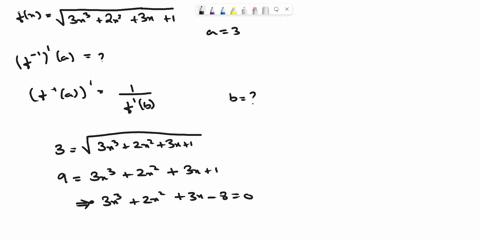 f(x) = √(3x³ + 2x² + 3x + 1)
a = 3
(f⁻¹)'(a) = ?
(f⁻¹(a))' = 1 / f'(b)
b = ?
3 = √(3x³ + 2x² + 3x + 1)
9 = 3x³ + 2x² + 3x + 1
⇒ 3x³ + 2x² + 3x - 8 = 0